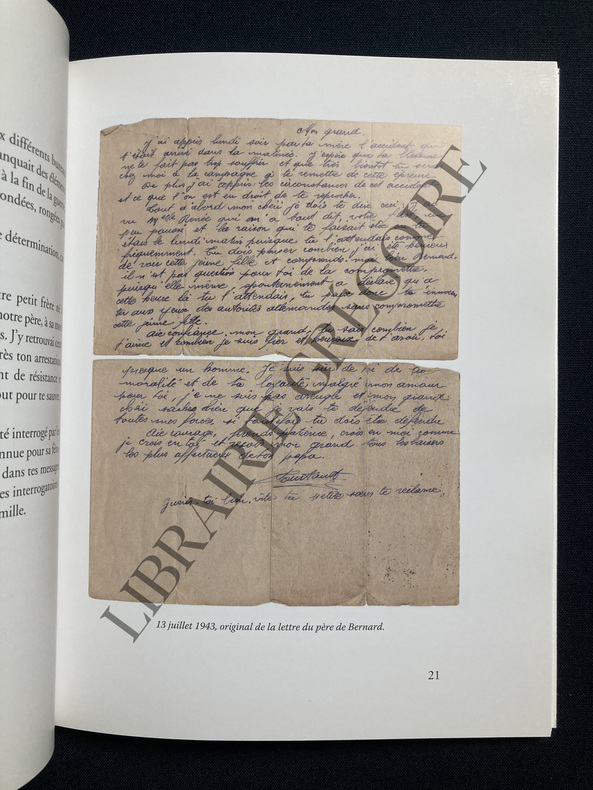 x différents
anquait des
à la fin de la
ondées, rongées
e détermination,
tre petit frère né
notre père, à sa
s. J'y retrouvai
rès ton arrestation
nt de résistance
out pour te sauver.
té interrogé par
nnue pour sa
dans tes messages
es interrogatoires
mille.
Mon grand
J'ai appris lundi soir par ta mère l'accident qui
t'était arrivé dans la matinée. J'espère que ta blessure
ne te fait pas trop souffrir et que très bientôt tu seras
chez moi à la campagne à te remettre de cette épreuve.
De plus j'ai appris les circonstances de cet accident
et ce que l'on est en droit de te reprocher.
Tout d'abord mon chéri je dois te dire ceci, j'ai
vu Melle Renée qui m'a tout dit, votre
peu puissant et la raison qui te faisait être
le lundi matin puisque tu l'attendais
fréquemment. Tu dois penser combien j'ai été heureux
de voir cette jeune fille et comprends moi bien Bernard,
il n'est pas question pour toi de la compromettre
puisqu'elle même spontanément a déclaré qu'à
cette heure là tu l'attendais, tu peux donc
aux yeux des autorités allemandes sans compromettre
cette jeune fille.
Aie confiance, mon grand, tu sais combien je
t'aime et combien je suis fier et heureux de t'avoir, toi
presque un homme. Je suis sûr de toi de ta
moralité et de ta loyauté malgré mon amour
pour toi, je ne suis pas aveugle et mon grand
chéri saches bien que je vais te défendre de
toutes mes forces, si toutefois tu dois être défendu
Aie courage, prends patience, crois en moi comme
je crois en toi et reçois mon grand tous les baisers
les plus affectueux de ton papa.
Guéris toi bien vite ta petite sœur te réclame.
13 juillet 1943, original de la lettre du père de Bernard.
21
LIBRAIRIE GRÉGOIRE